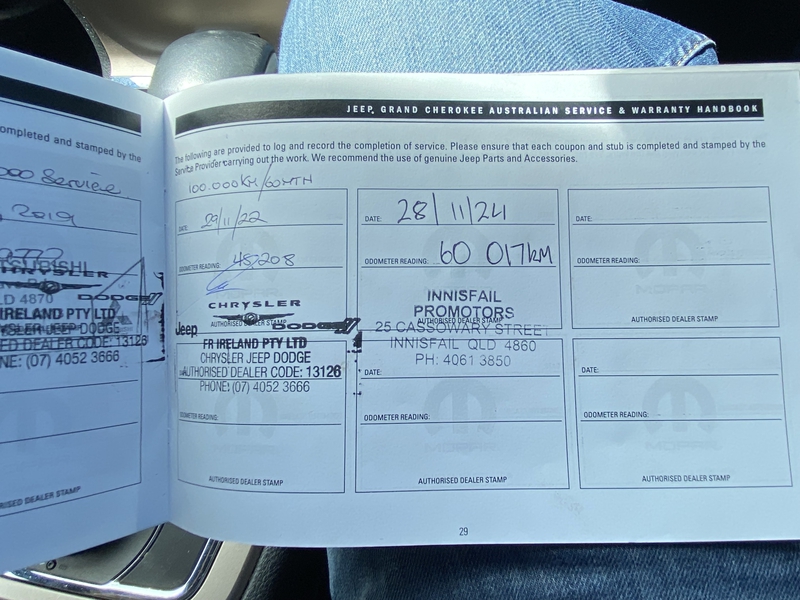 ompleted and stamped by the
000 Service
2019
LD 4870
DODGE
IRELAND PTY LTD
YSLER JEEP DODGE
ED DEALER CODE: 13126
NE: (07) 4052 3666
RISED DEALER STAMP
JEEP, GRAND CHEROKEE AUSTRALIAN SERVICE & WARRANTY HANDBOOK
The following are provided to log and record the completion of service. Please ensure that each coupon and stub is completed and stamped by the
Service Provider carrying out the work. We recommend the use of genuine Jeep Parts and Accessories.
100.000KM/60MTH
DATE: 29/11/22
ODOMETER READING: 48208
CHRYSLER
AUTHORISED DEALER STAMP
Jeep DODGE
FR IRELAND PTY LTD
CHRYSLER JEEP DODGE
AUTHORISED DEALER CODE: 13126
PHONE: (07) 4052 3666
ODOMETER READING:
AUTHORISED DEALER STAMP
DATE: 28/11/24
ODOMETER READING: 60 017KM
INNISFAIL
PROMOTORS
AUTHORISED DEALER STAMP
25 CASSOWARY STREET
INNISFAIL QLD 4860
PH: 4061 3850
DATE:
ODOMETER READING:
AUTHORISED DEALER STAMP
DATE:
ODOMETER READING:
AUTHORISED DEALER STAMP
DATE:
ODOMETER READING:
AUTHORISED DEALER STAMP
29